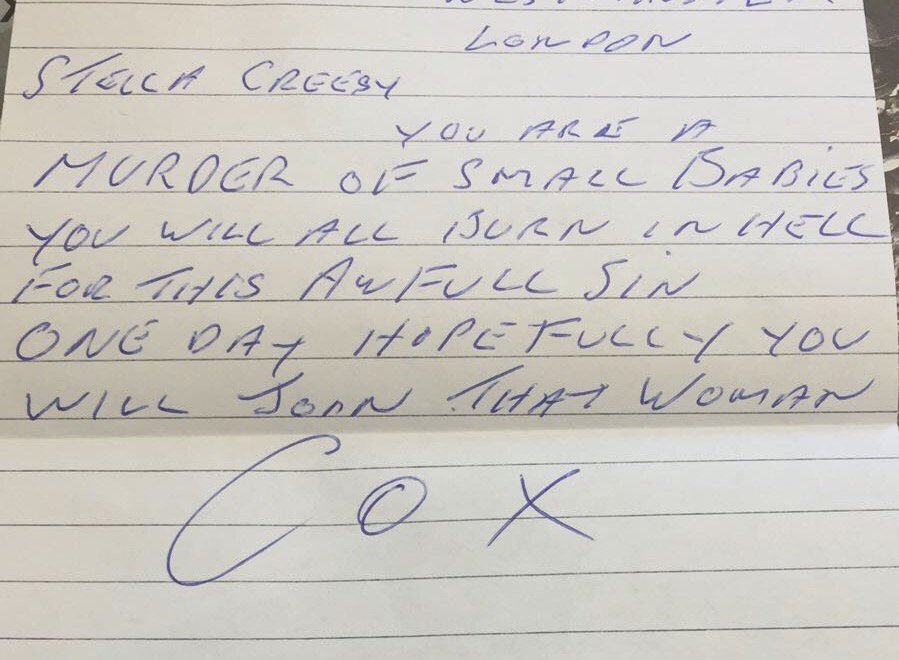 LONDON
STELLA CREESY
YOU ARE A
MURDER OF SMALL BABIES
YOU WILL ALL BURN IN HELL
FOR THIS AWFULL SIN
ONE DAY HOPEFULLY YOU
WILL JOIN THAT WOMAN
COX